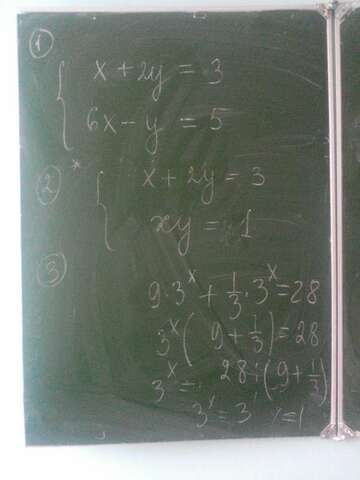 1
x + 2y = 3
6x - y = 5
2*
x + 2y = 3
xy = 1
3
9·3^x + 1/3·3^x = 28
3^x(9 + 1/3) = 28
3^x = 28 : (9 + 1/3)
3^x = 3^1 x = 1